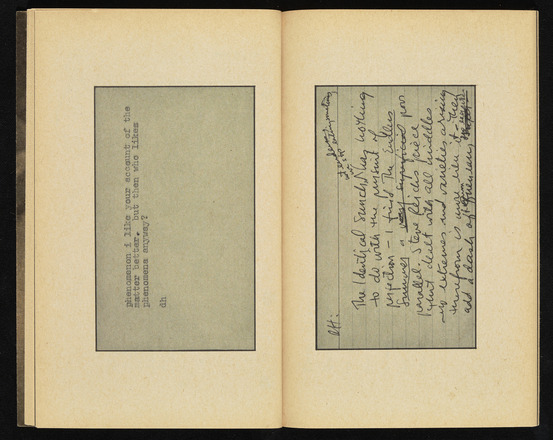 phenomenon i like your account of the
matter better. but then who likes
phenomena anyway?
dh
DH:
The Identical Lunch has nothing
to do with the pursuit of
perfection — I find The Endless
Summer a very superficial poor
parallel. Steve feels his piece
that dealt with all middles
no extremes and varieties arising
therefrom is more like it — they
add a dash of